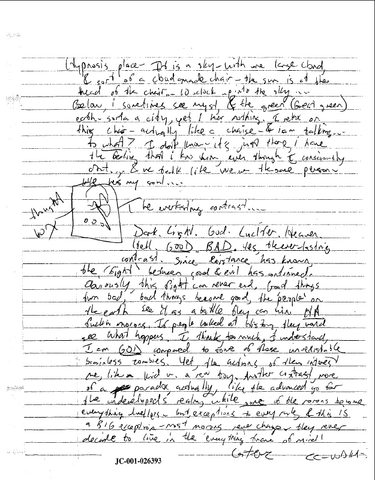 Hypnosis place- It is a sky- with one large cloud,
& sort of a cloud made chair- the sun is at the
head of the chair- 10 oclock- into the sky...
Below, i sometimes see myst & the green (Great green)
earth- sorta a city, yet I hear nothing. I relax on
this chair- actually like a chaise- & i am talking...
to what? I dont know- its just there, i have
the feeling that i know him, even though I consciously
dont... & we talk like we are the same person-
like hes my soul....
The everlasting contrast....
Dark. Light. God. Lucifer. Heaven.
Hell. GOOD. BAD. Yes, the everlasting
contrast. Since existance has known,
the 'fight' between good & evil has continued.
Obviously, this fight can never end. Good things
turn bad, bad things become good, the 'people' on
the earth see it as a battle they can win. HA
fuckin morons. If people looked at History, they would
see what happens. I think, too much, I understand,
I am GOD compared to some of those
brainless zombies. Yet, the actions of them interest
me, like a kid with a new toy. Another contrast, more
of a paradox, actually, like the advanced go for
the undeveloped's realm, while some of the morons become
everything dwellers- but exceptions to every rule, & this is
a BIG exception- most morons never change- they never
decide to live in the 'everything' frame of mind!
JC-001-026393